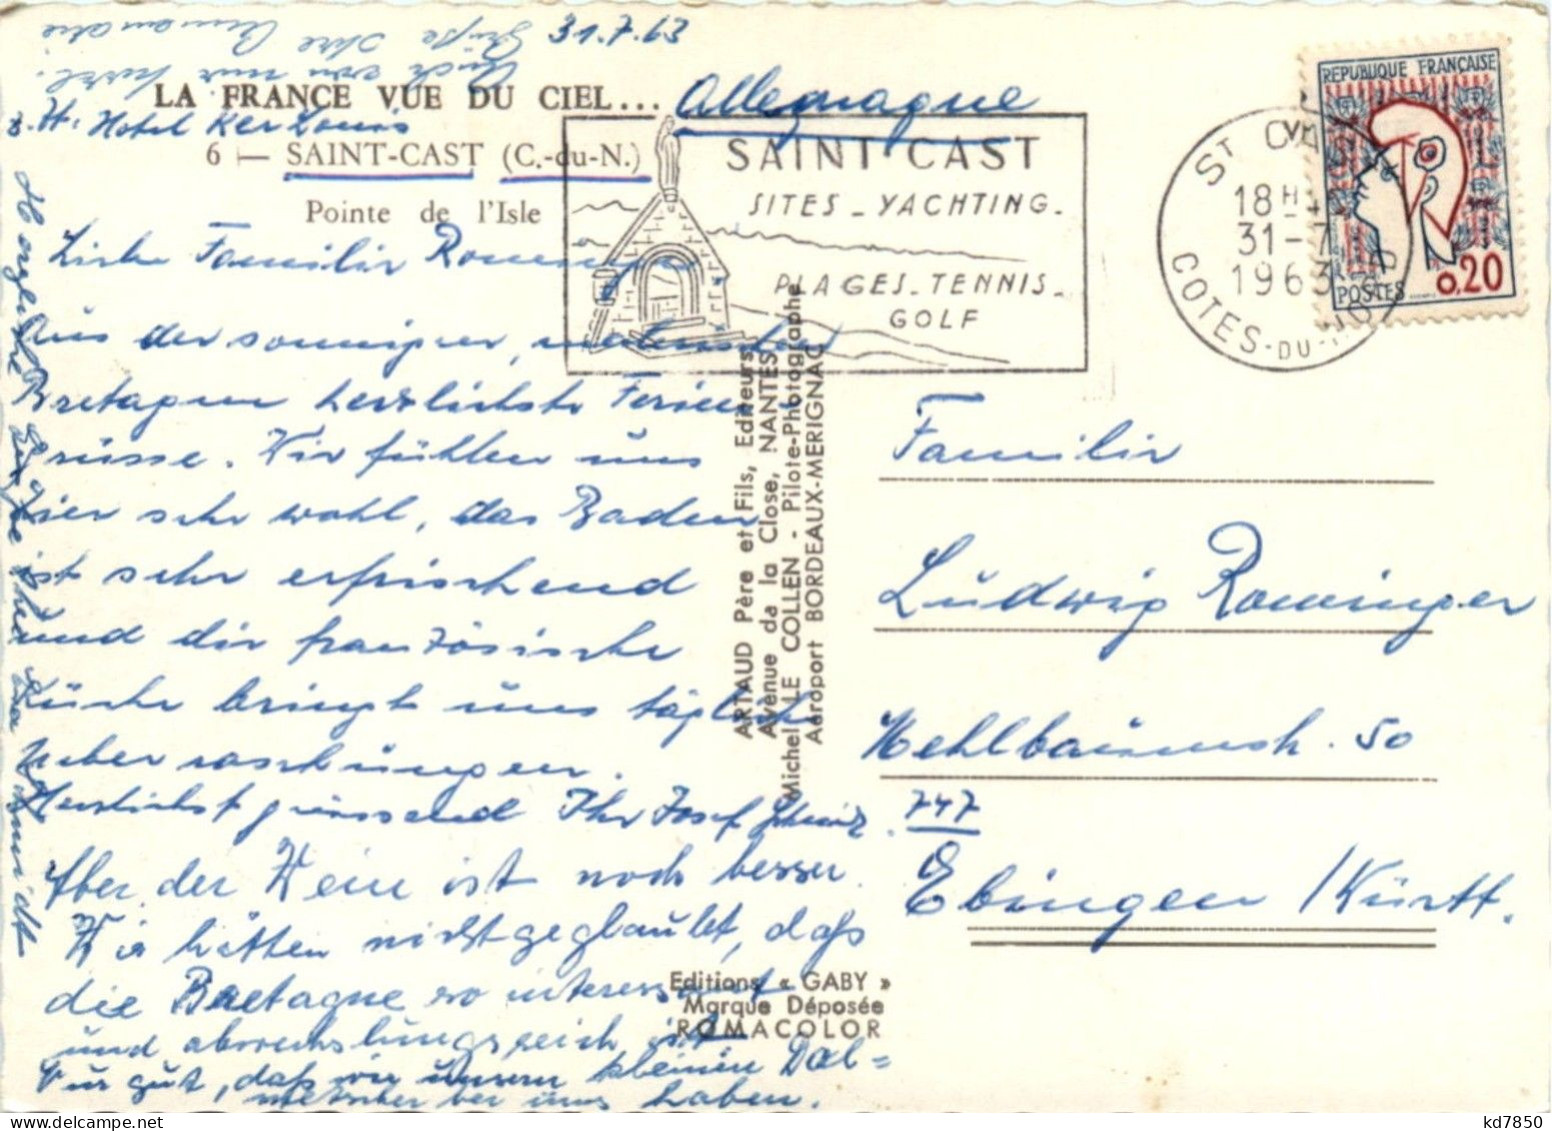 31.7.63
Auch von mir herzl.
Grüße Ihre Annemarie
LA FRANCE VUE DU CIEL...
Allemagne
z. Zt. Hotel Ker Louis
6 — SAINT-CAST (C.-du-N.)
Pointe de l'Isle
SAINT CAST
SITES - YACHTING -
PLAGES - TENNIS -
GOLF
ST CAST
18H
31-7
1963
COTES-DU-NORD
REPUBLIQUE FRANÇAISE
POSTES
0,20
Liebe Familie Rominger
Aus der sonnigen, malerischen
Bretagne herzlichste Ferien
Grüsse. Wir fühlen uns
hier sehr wohl, das Baden
ist sehr erfrischend
und die französische
Küche bringt uns täglich
Ueberraschungen.
Herzlichst grüssend Ihr Josef
Aber der Wein ist noch besser.
Wir hätten nicht geglaubt, daß
die Bretagne so interessant
und abwechslungsreich ist.
Nur gut, daß wir unsern kleinen Dol=
metscher bei uns haben.
Herzliche Grüße Ihre
ARTAUD Père et Fils, Editeurs
Avenue de la Close, NANTES
Michel LE COLLEN - Pilote-Photographe
Aéroport BORDEAUX-MERIGNAC
Editions « GABY »
Marque Déposée
ROMACOLOR
Familie
Ludwig Rominger
Mehlbaumstr. 50
747
Ebingen /Württ.
kd7850